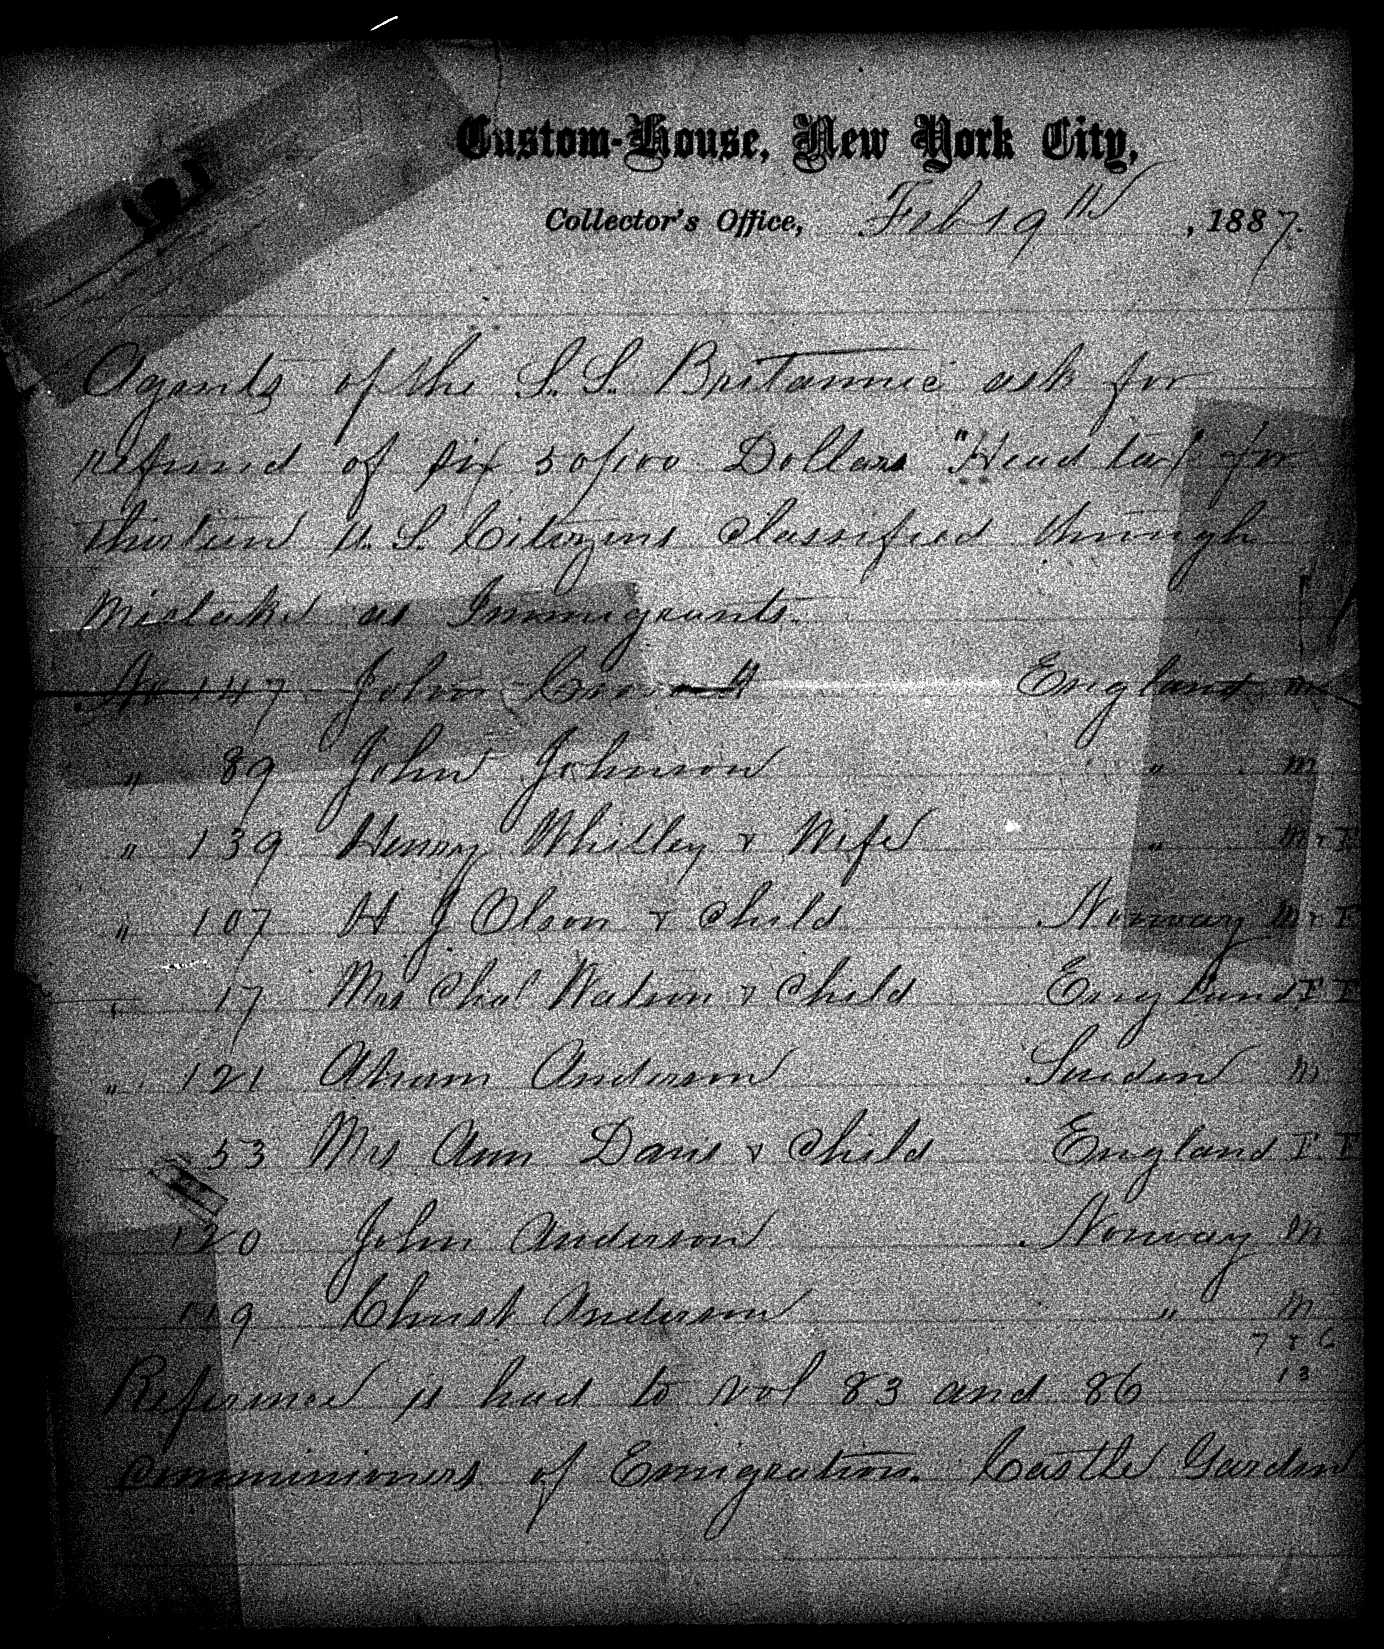 121
Custom-House, New York City,
Collector's Office, Feb 19th, 1887.
Agents of the S.S. Britannic ask for
refund of six 50/100 Dollars "Head tax" for
thirteen U.S. Citizens classified through
Mistake as Immigrants.
No 147 John England M
" 89 John Johnson " M
" 139 Henry Whitley & Wife " M & F
" 107 H J Olson & Child Norway M & F
" 17 Mrs Chas Watson & Child England F F
" 121 Abram Anderson Sweden M
53 Mrs Ann Davis & Child England F. F
120 John Anderson Norway M
119 Christ Anderson " M
7 & 6
13
Reference is had to Vol 83 and 86
Commissioners of Emigration. Castle Garden